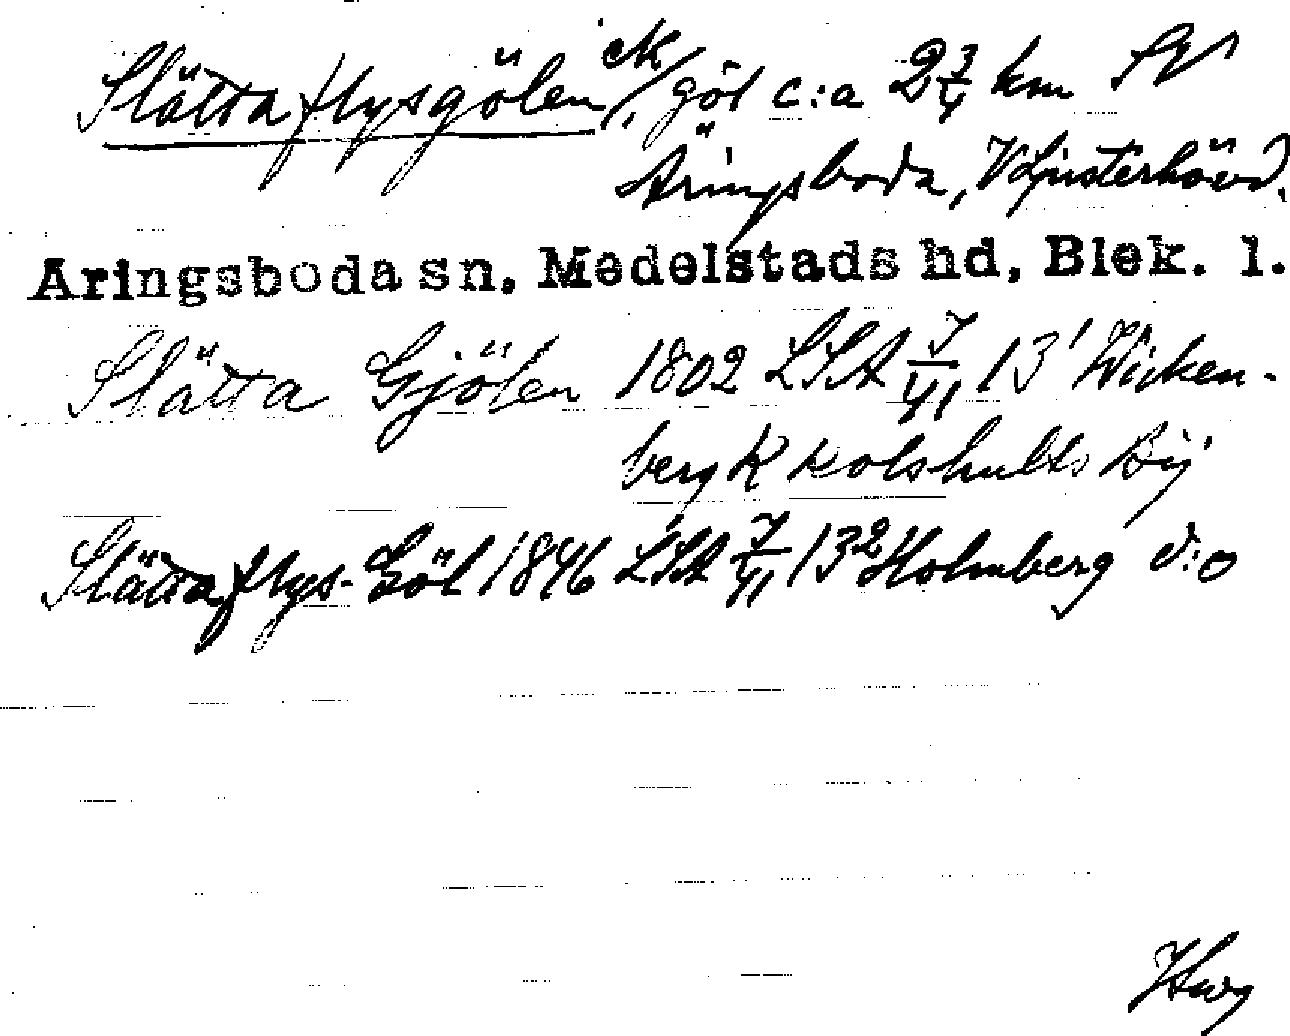 Slättaflysgölen, ek / göl c:a 2 3/4 km SV
Äringsboda, V Ljusterhövd.
Aringsboda sn. Medelstads hd, Blek. l.
Slätta Gjölen 1802 LSA J/41 13¹ Wicken-
berg K Kolshults By
Slättaflys-Göl 1846 LSA J/41 13² Holmberg d:o